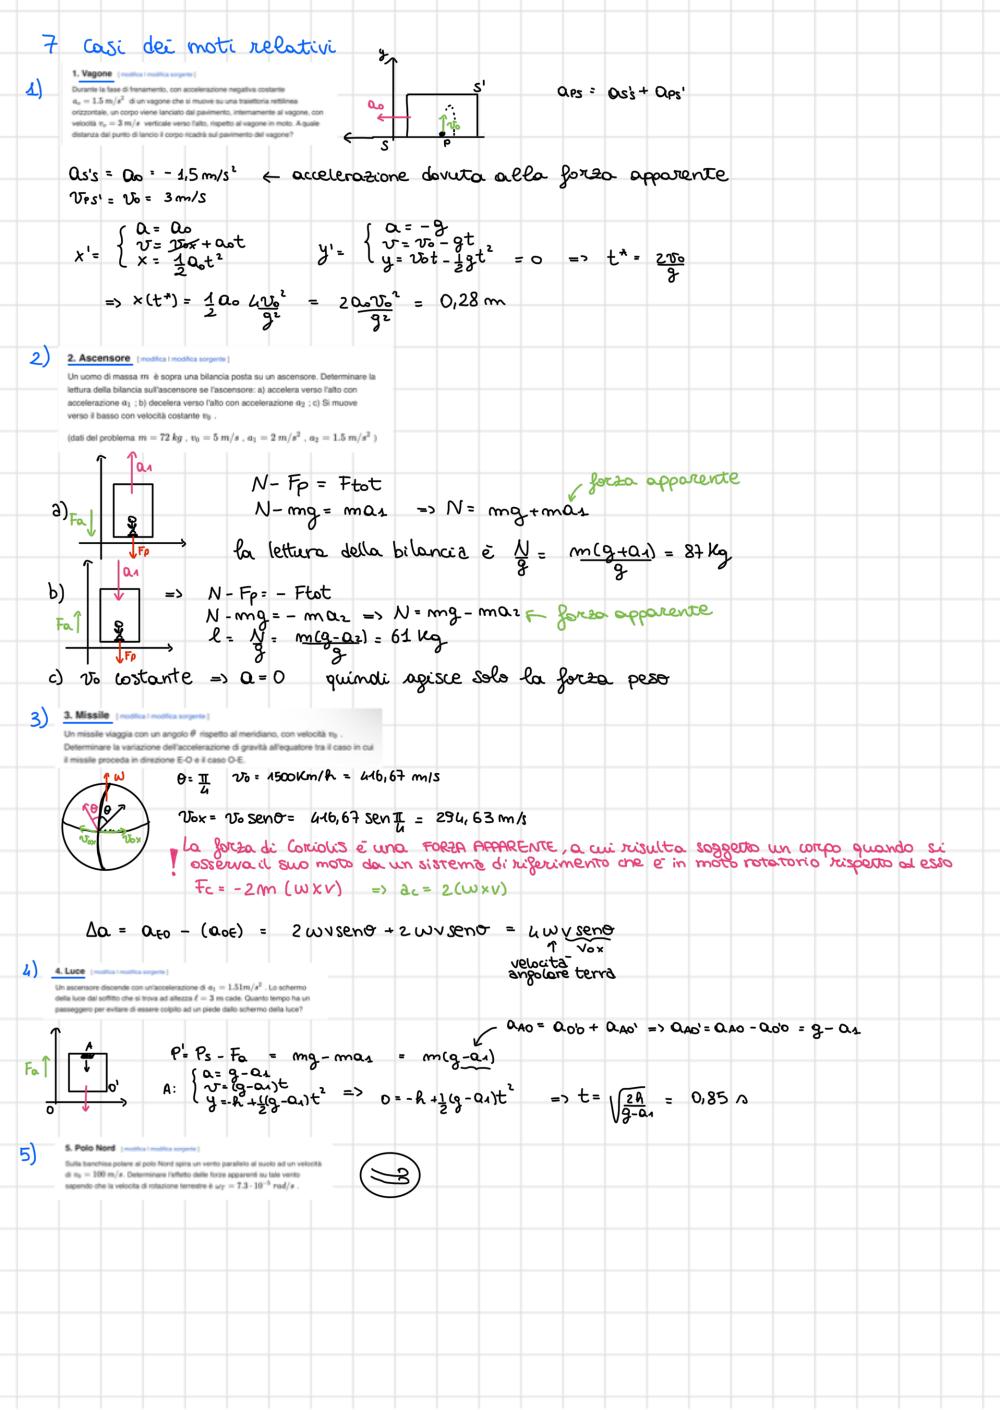 7 Casi dei moti relativi
1)
1. Vagone [ modifica | modifica sorgente ]
Durante la fase di frenamento, con accelerazione negativa costante
a₀ = 1.5 m/s² di un vagone che si muove su una traiettoria rettilinea
orizzontale, un corpo viene lanciato dal pavimento, internamente al vagone, con
velocità v₀ = 3 m/s verticale verso l'alto, rispetto al vagone in moto. A quale
distanza dal punto di lancio il corpo ricadrà sul pavimento del vagone?
y
S'
a₀
v₀
S
P
aPS = aS'S + aPS'
aS'S = a₀ = - 1,5 m/s² ← accelerazione dovuta alla forza apparente
vPS' = v₀ = 3 m/s
x' = { a = a₀
v = v₀x + a₀t
x = ½ a₀t²
y' = { a = -g
v = v₀ - gt
y = v₀t - ½gt² = 0 => t* = 2v₀/g
=> x(t*) = ½ a₀ 4v₀²/g² = 2a₀v₀²/g² = 0,28 m
2)
2. Ascensore [ modifica | modifica sorgente ]
Un uomo di massa m è sopra una bilancia posta su un ascensore. Determinare la
lettura della bilancia sull'ascensore se l'ascensore: a) accelera verso l'alto con
accelerazione a₁ ; b) decelera verso l'alto con accelerazione a₂ ; c) Si muove
verso il basso con velocità costante v₀ .
(dati del problema m = 72 kg , v₀ = 5 m/s , a₁ = 2 m/s² , a₂ = 1.5 m/s² )
a)
Fa
a₁
Fp
N - Fp = Ftot
forza apparente
N - mg = ma₁ => N = mg + ma₁
la lettura della bilancia è N/g = m(g+a₁)/g = 87 Kg
b)
Fa
a₁
Fp
=> N - Fp = - Ftot
N - mg = - ma₂ => N = mg - ma₂ ← forza apparente
l = N/g = m(g-a₂)/g = 61 Kg
c) v₀ costante => a = 0 quindi agisce solo la forza peso
3)
3. Missile [ modifica | modifica sorgente ]
Un missile viaggia con un angolo θ rispetto al meridiano, con velocità v₀ .
Determinare la variazione dell'accelerazione di gravità all'equatore tra il caso in cui
il missile proceda in direzione E-O e il caso O-E.
w
θ
θ
vox
vox
θ = π/4 v₀ = 1500 Km/h = 416,67 m/s
vox = v₀ senθ = 416,67 sen π/4 = 294,63 m/s
! La forza di Coriolis è una FORZA APPARENTE, a cui risulta soggetto un corpo quando si
osserva il suo moto da un sistema di riferimento che è in moto rotatorio rispetto ad esso
Fc = -2m (w×v) => ac = 2(w×v)
Δa = aEO - (aOE) = 2wvsenθ + 2wvsenθ = 4wv senθ
↑ vox
velocità
angolare terra
4)
4. Luce [ modifica | modifica sorgente ]
Un ascensore discende con un'accelerazione di a₁ = 1.51m/s² . Lo schermo
della luce dal soffitto che si trova ad altezza ℓ = 3 m cade. Quanto tempo ha un
passeggero per evitare di essere colpito ad un piede dallo schermo della luce?
Fa
A
O'
O
aAO = aO'O + aAO' => aAO' = aAO - aO'O = g - a₁
P' = Ps - Fa = mg - ma₁ = m(g-a₁)
A: { a = g-a₁
v = (g-a₁)t
y = -h + ½(g-a₁)t² => 0 = -h + ½(g-a₁)t² => t = √(2h/(g-a₁)) = 0,85 s
5)
5. Polo Nord [ modifica | modifica sorgente ]
Sulla banchisa polare al polo Nord spira un vento parallelo al suolo ad un velocità
di v₀ = 100 m/s. Determinare l'effetto delle forze apparenti su tale vento
sapendo che la velocità di rotazione terrestre è ωT = 7.3 · 10⁻⁵ rad/s .